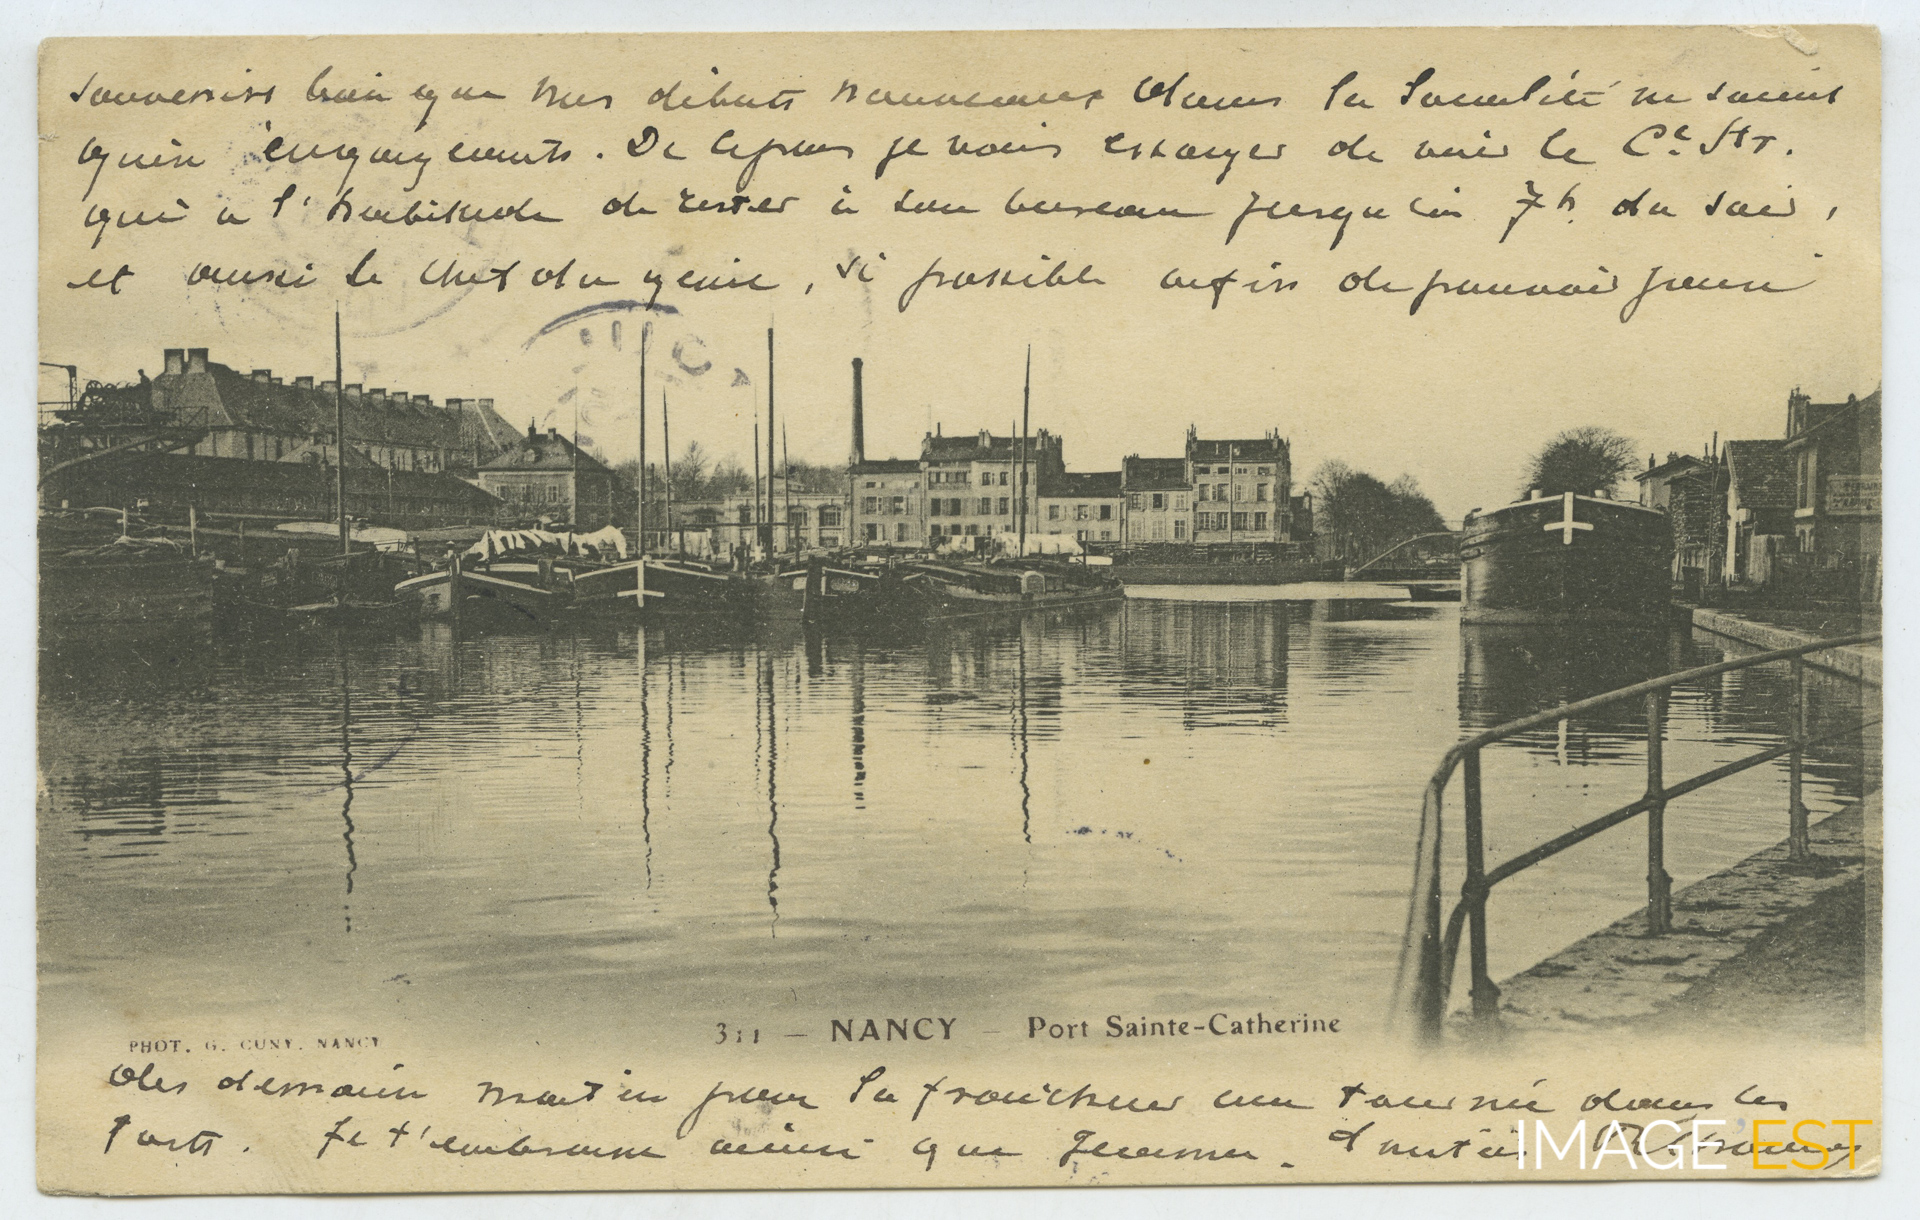 souvenirs bien que mes débuts nouveaux dans la localité ne soient
qu'engageants. De ce pas je vais essayer de voir le Ct
qui a l'habitude de rester à son bureau jusqu'à 7h. du soir,
et aussi le chef du génie, si possible afin de pouvoir faire
311 — NANCY — Port Sainte-Catherine
PHOT. G. CUNY. NANCY
dès demain matin pour la fraîcheur une tournée dans les
forts. Je t'embrasse ainsi que Jeanne.
IMAGE'EST